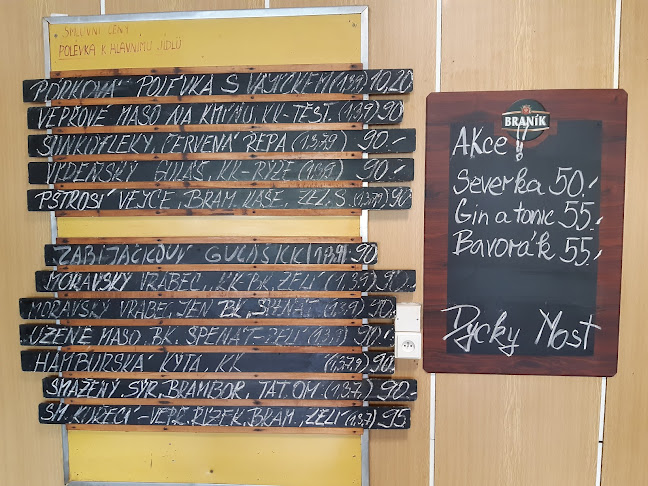 SMLUVNÍ CENY
POLEVKA K HLAVNÍMU JÍDLU
PÓRKOVÁ POLEVKA S VAJÍČKEM (1,3,9) 10,20
VEPŘOVÉ MASO NA KMÍNU, KK-TĚST. (1,3,9) 90
ŠUNKOFLEKY, ČERVENÁ ŘEPA (1,3,7,9) 90.-
VIDEŇSKÝ GULÁŠ, KK-RÝŽE (1,3,9) 90.-
PŠTROSÍ VEJCE, BRAM. KAŠE, ZEL. S. (1,3,7,9) 90
ZABIJAČKOVÝ GULÁŠ KK (1,3,9) 90
MORAVSKÝ VRABEC, KK-BR. ZELÍ (1,3,9) 90.-
MORAVSKÝ VRABEC, JEN BK, ŠPENÁT (1,3,9) 90.-
UZENÉ MASO, BK. ŠPENÁT-ZELÍ (1,3,9) 90
HAMBURSKÁ KÝTA, KK (1,3,7,9) 90
SMAŽENÝ SÝR, BRAMBOR, TAT OM (1,3,7) 90.-
SM. KUŘECÍ-VEPŘ. ŘÍZEK, BRAM., ZELÍ (1,3,7) 95
BRANÍK
Akce !!
Severka 50.-
Gin a tonic 55.-
Bavorák 55.-
Dycky Most